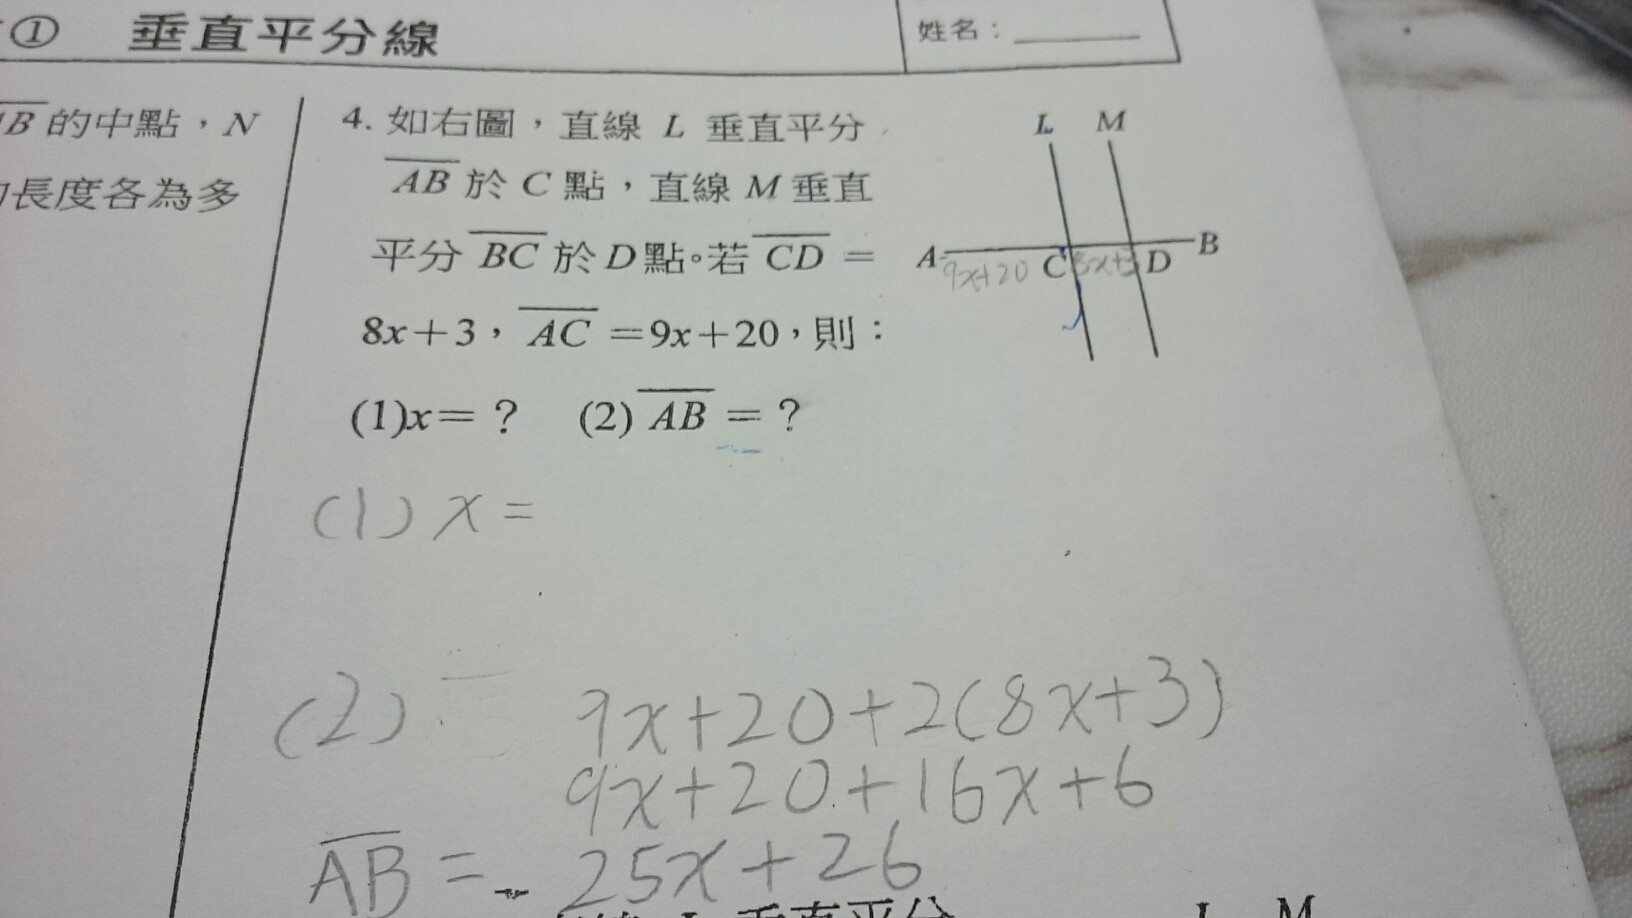 ① 垂直平分線
姓名：
B 的中點，N
長度各為多
4. 如右圖，直線 L 垂直平分
AB 於 C 點，直線 M 垂直
平分 BC 於 D 點。若 CD =
8x+3，AC =9x+20，則：
(1)x= ? (2) AB = ?
L M
A C D B
9x+20 8x+3
(1) x =
(2) 9x+20+2(8x+3)
9x+20+16x+6
AB = 25x+26
L 垂直平分
L M